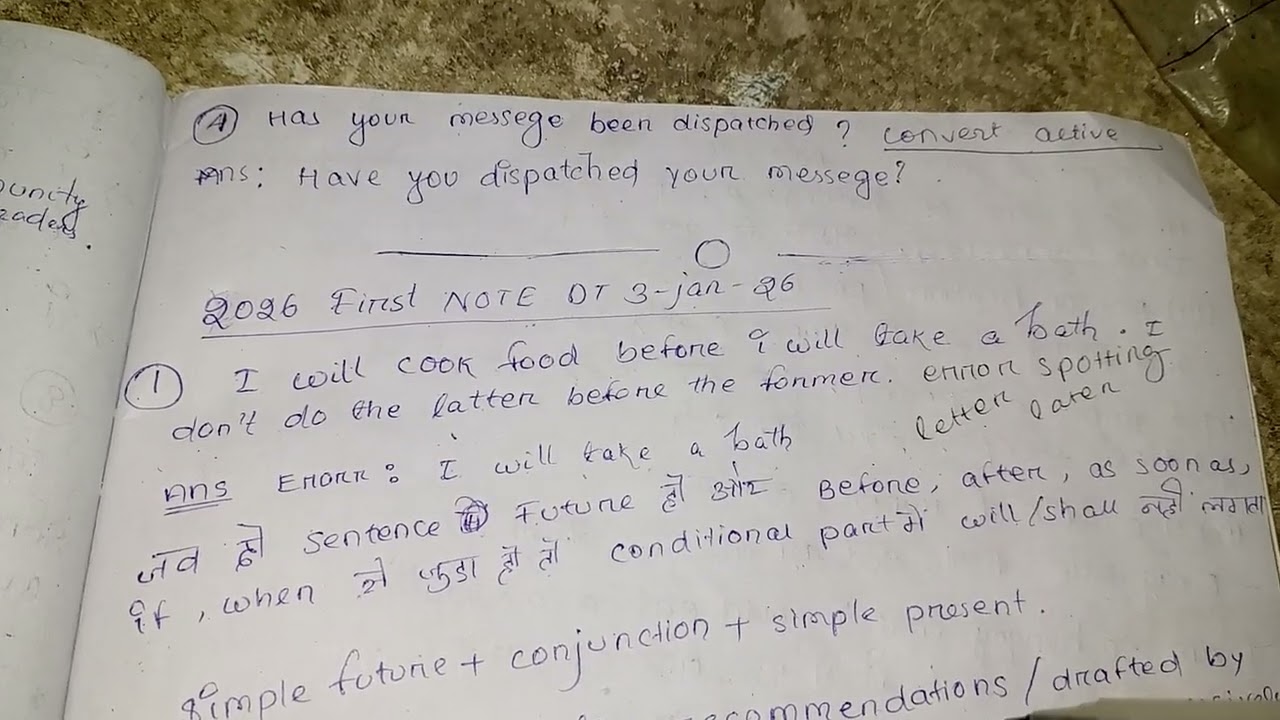 ouncity
zaders.
(A) Has your messege been dispatched ? convert active
Ans: Have you dispatched your messege?
2026 First NOTE DT 3-jan-26
(1) I will cook food before i will take a bath. I
don't do the latter before the former. error spotting
letter later
Ans Erorr: I will take a bath
जब दो sentence Future हो और Before, after, as soon as,
if, when से जुडा हो तो conditional part में will/shall नही लगता
simple future + conjunction + simple present.
recommendations / drafted by